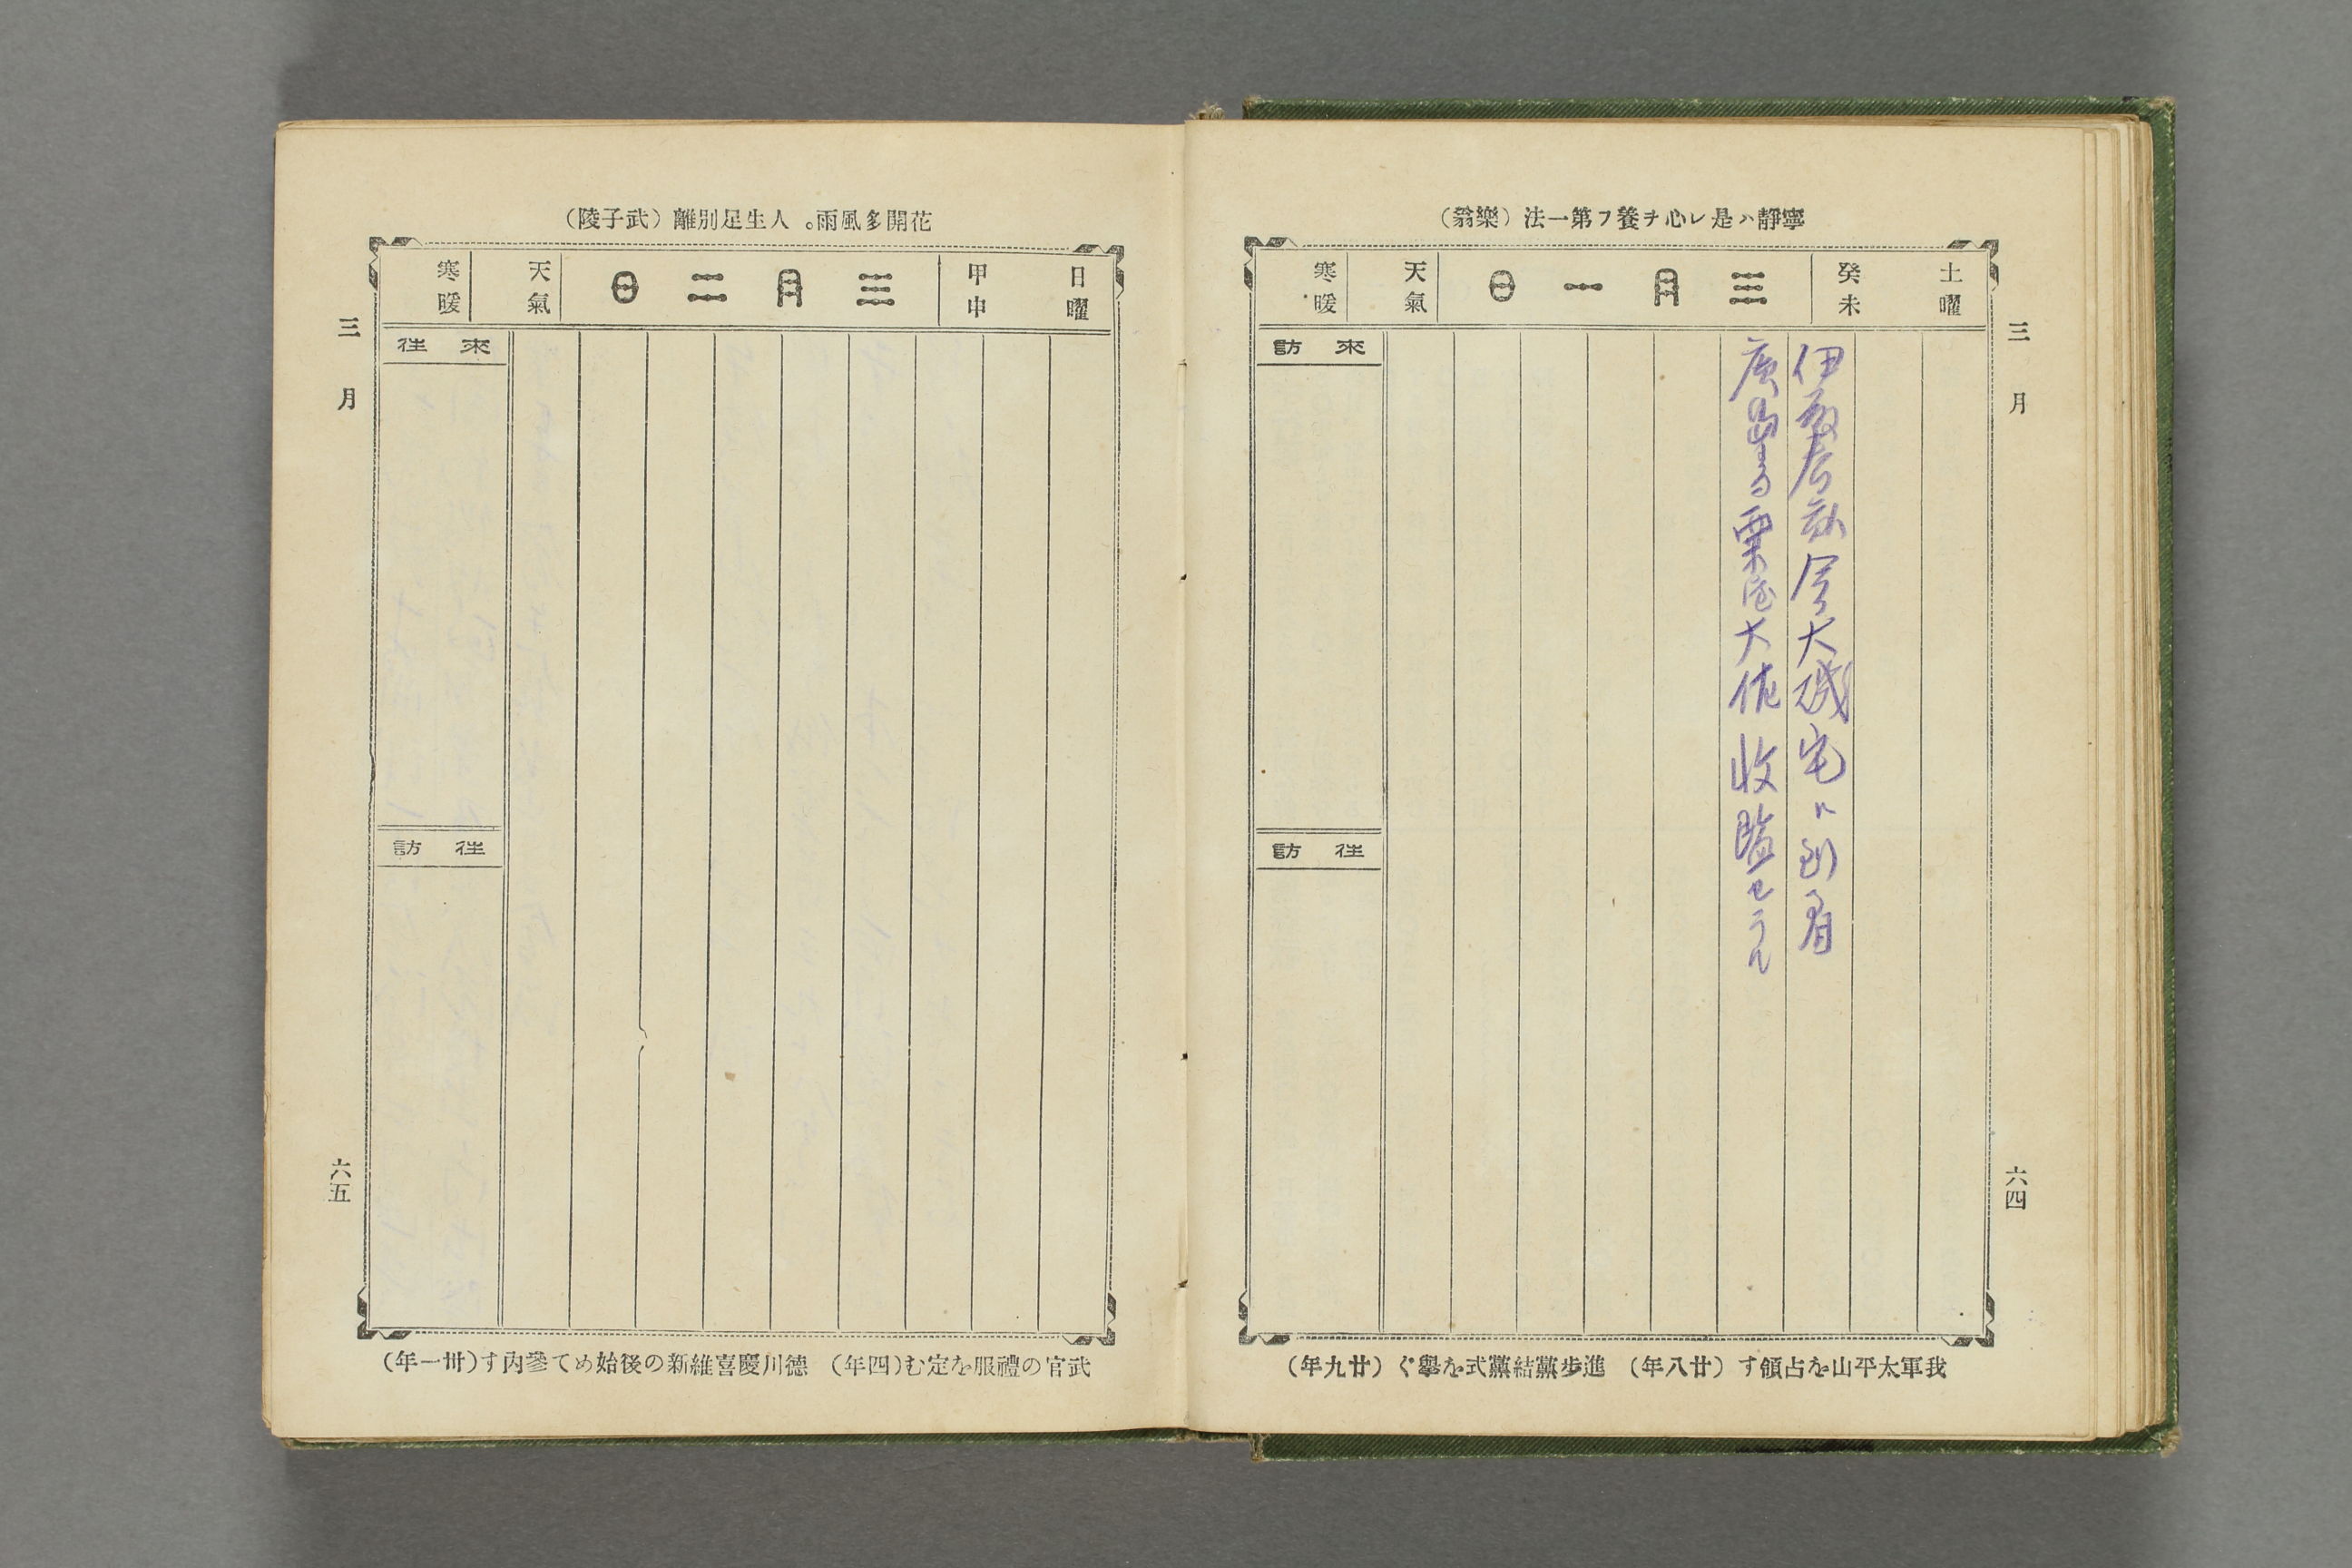 寧靜ハ是レ心ヲ養フ第一法（樂翁）
土曜
癸未
三月一日
天氣
寒暖
伊藤春畝今大磯宅ニ到着
廣島 粟屋大佐收監セラル
來訪
往訪
三月
六四
我軍太平山を占領す（廿八年）　進步黨結黨式を擧ぐ（廿九年）
花開多風雨。人生足別離（武子陵）
日曜
甲申
三月二日
天氣
寒暖
來往
往訪
三月
六五
武官の禮服を定む（四年）　德川慶喜維新の後始めて參內す（卅一年）